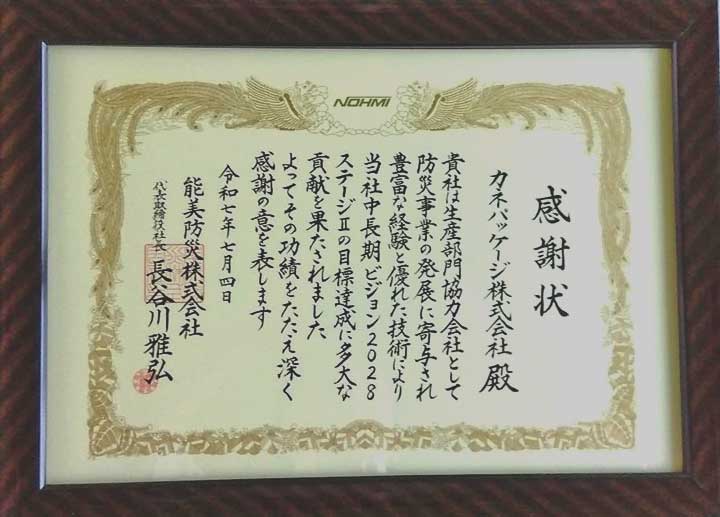 NOHMI
感謝状
カネパッケージ株式会社 殿
貴社は生産部門協力会社として
防災事業の発展に寄与され
豊富な経験と優れた技術により
当社中長期ビジョン2028
ステージⅡの目標達成に多大な
貢献を果たされました
よってその功績をたたえ深く
感謝の意を表します
令和七年七月四日
能美防災株式会社
代表取締役社長 長谷川雅弘